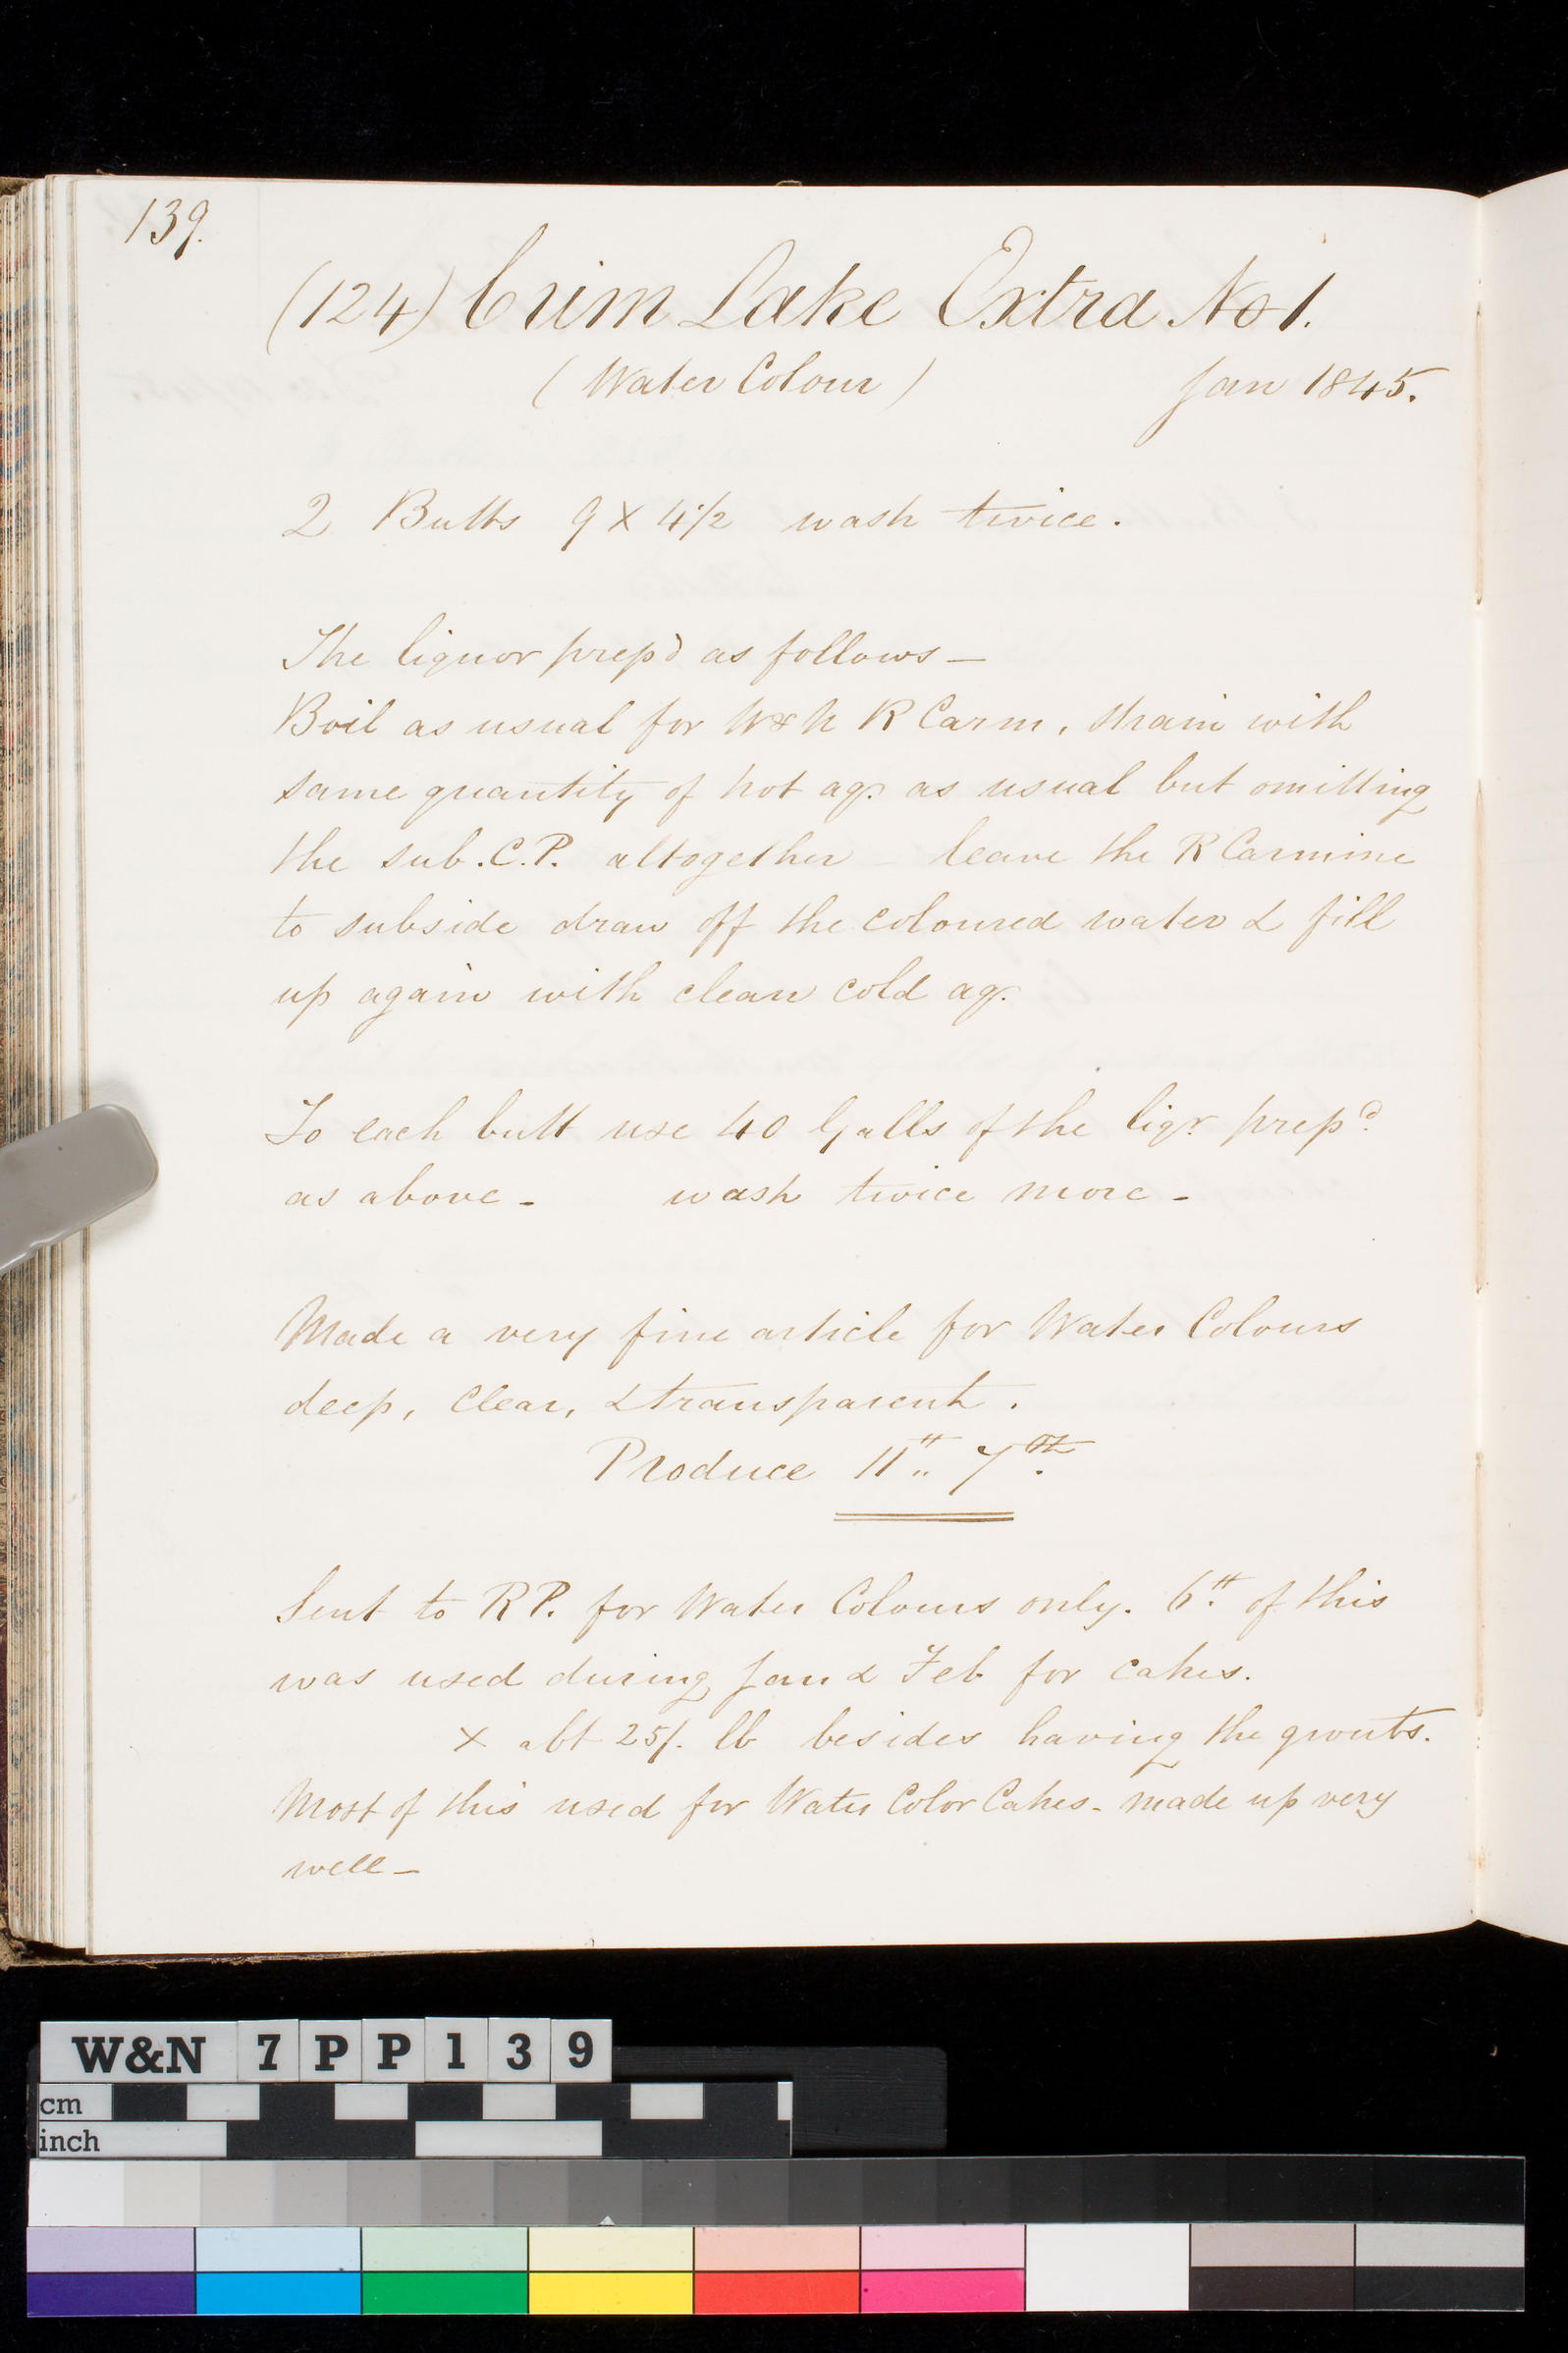 139.
(124) Crim Lake Extra No 1.
( Water Colour ) Jan 1845.
2 Butts 9 X 4 1/2 wash twice.
The liquor prep'd as follows —
Boil as usual for W & N R Carm, strain with
same quantity of hot aq. as usual but omitting
the sub. C. P. altogether – leave the R Carmine
to subside draw off the coloured water & fill
up again with clean cold aq.
To each butt use 40 Galls of the liqr. prepd.
as above - wash twice more -
Made a very fine article for Water Colours
deep, clear, & transparent.
Produce 11 lb .. 7 oz.
Sent to R P. for Water Colours only. 6 lb. of this
was used during Jan & Feb for cakes.
X abt 25/. lb besides having the grouts.
Most of this used for Water Color Cakes - made up very
well —
W&N 7 P P 1 3 9
cm
inch